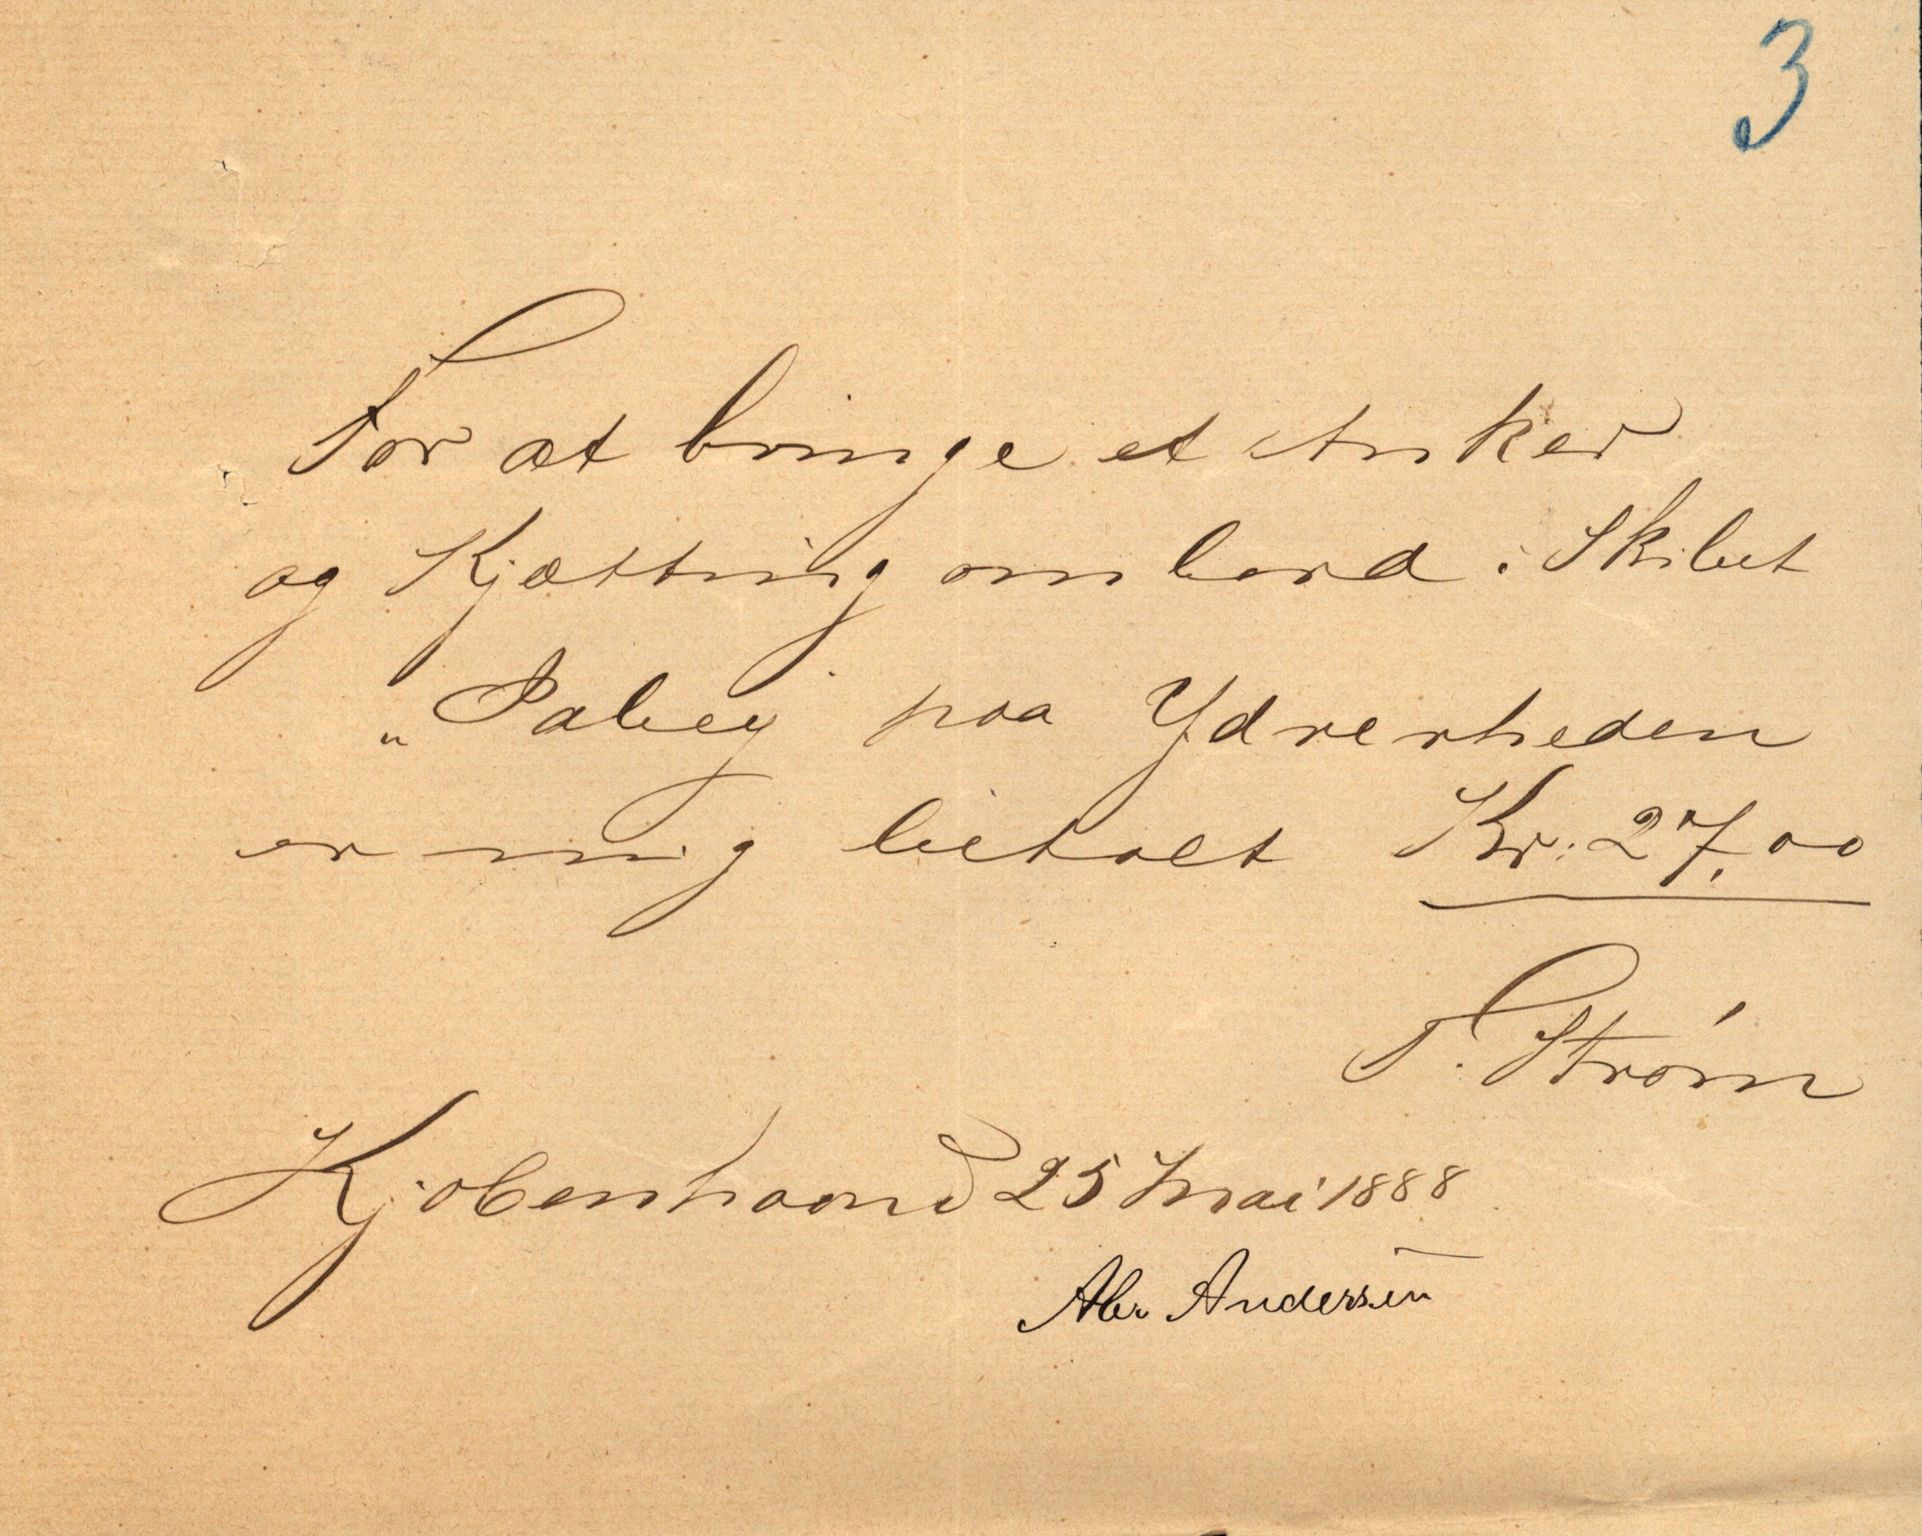 3
For at bringe et Anker
og Kjætting ombord i Skibet
„Pabey paa Ydrerheden
er mig betalt Kr: 27,00
T. Strøm
Kjøbenhavn d 25 Mai 1888
Abr Andersen